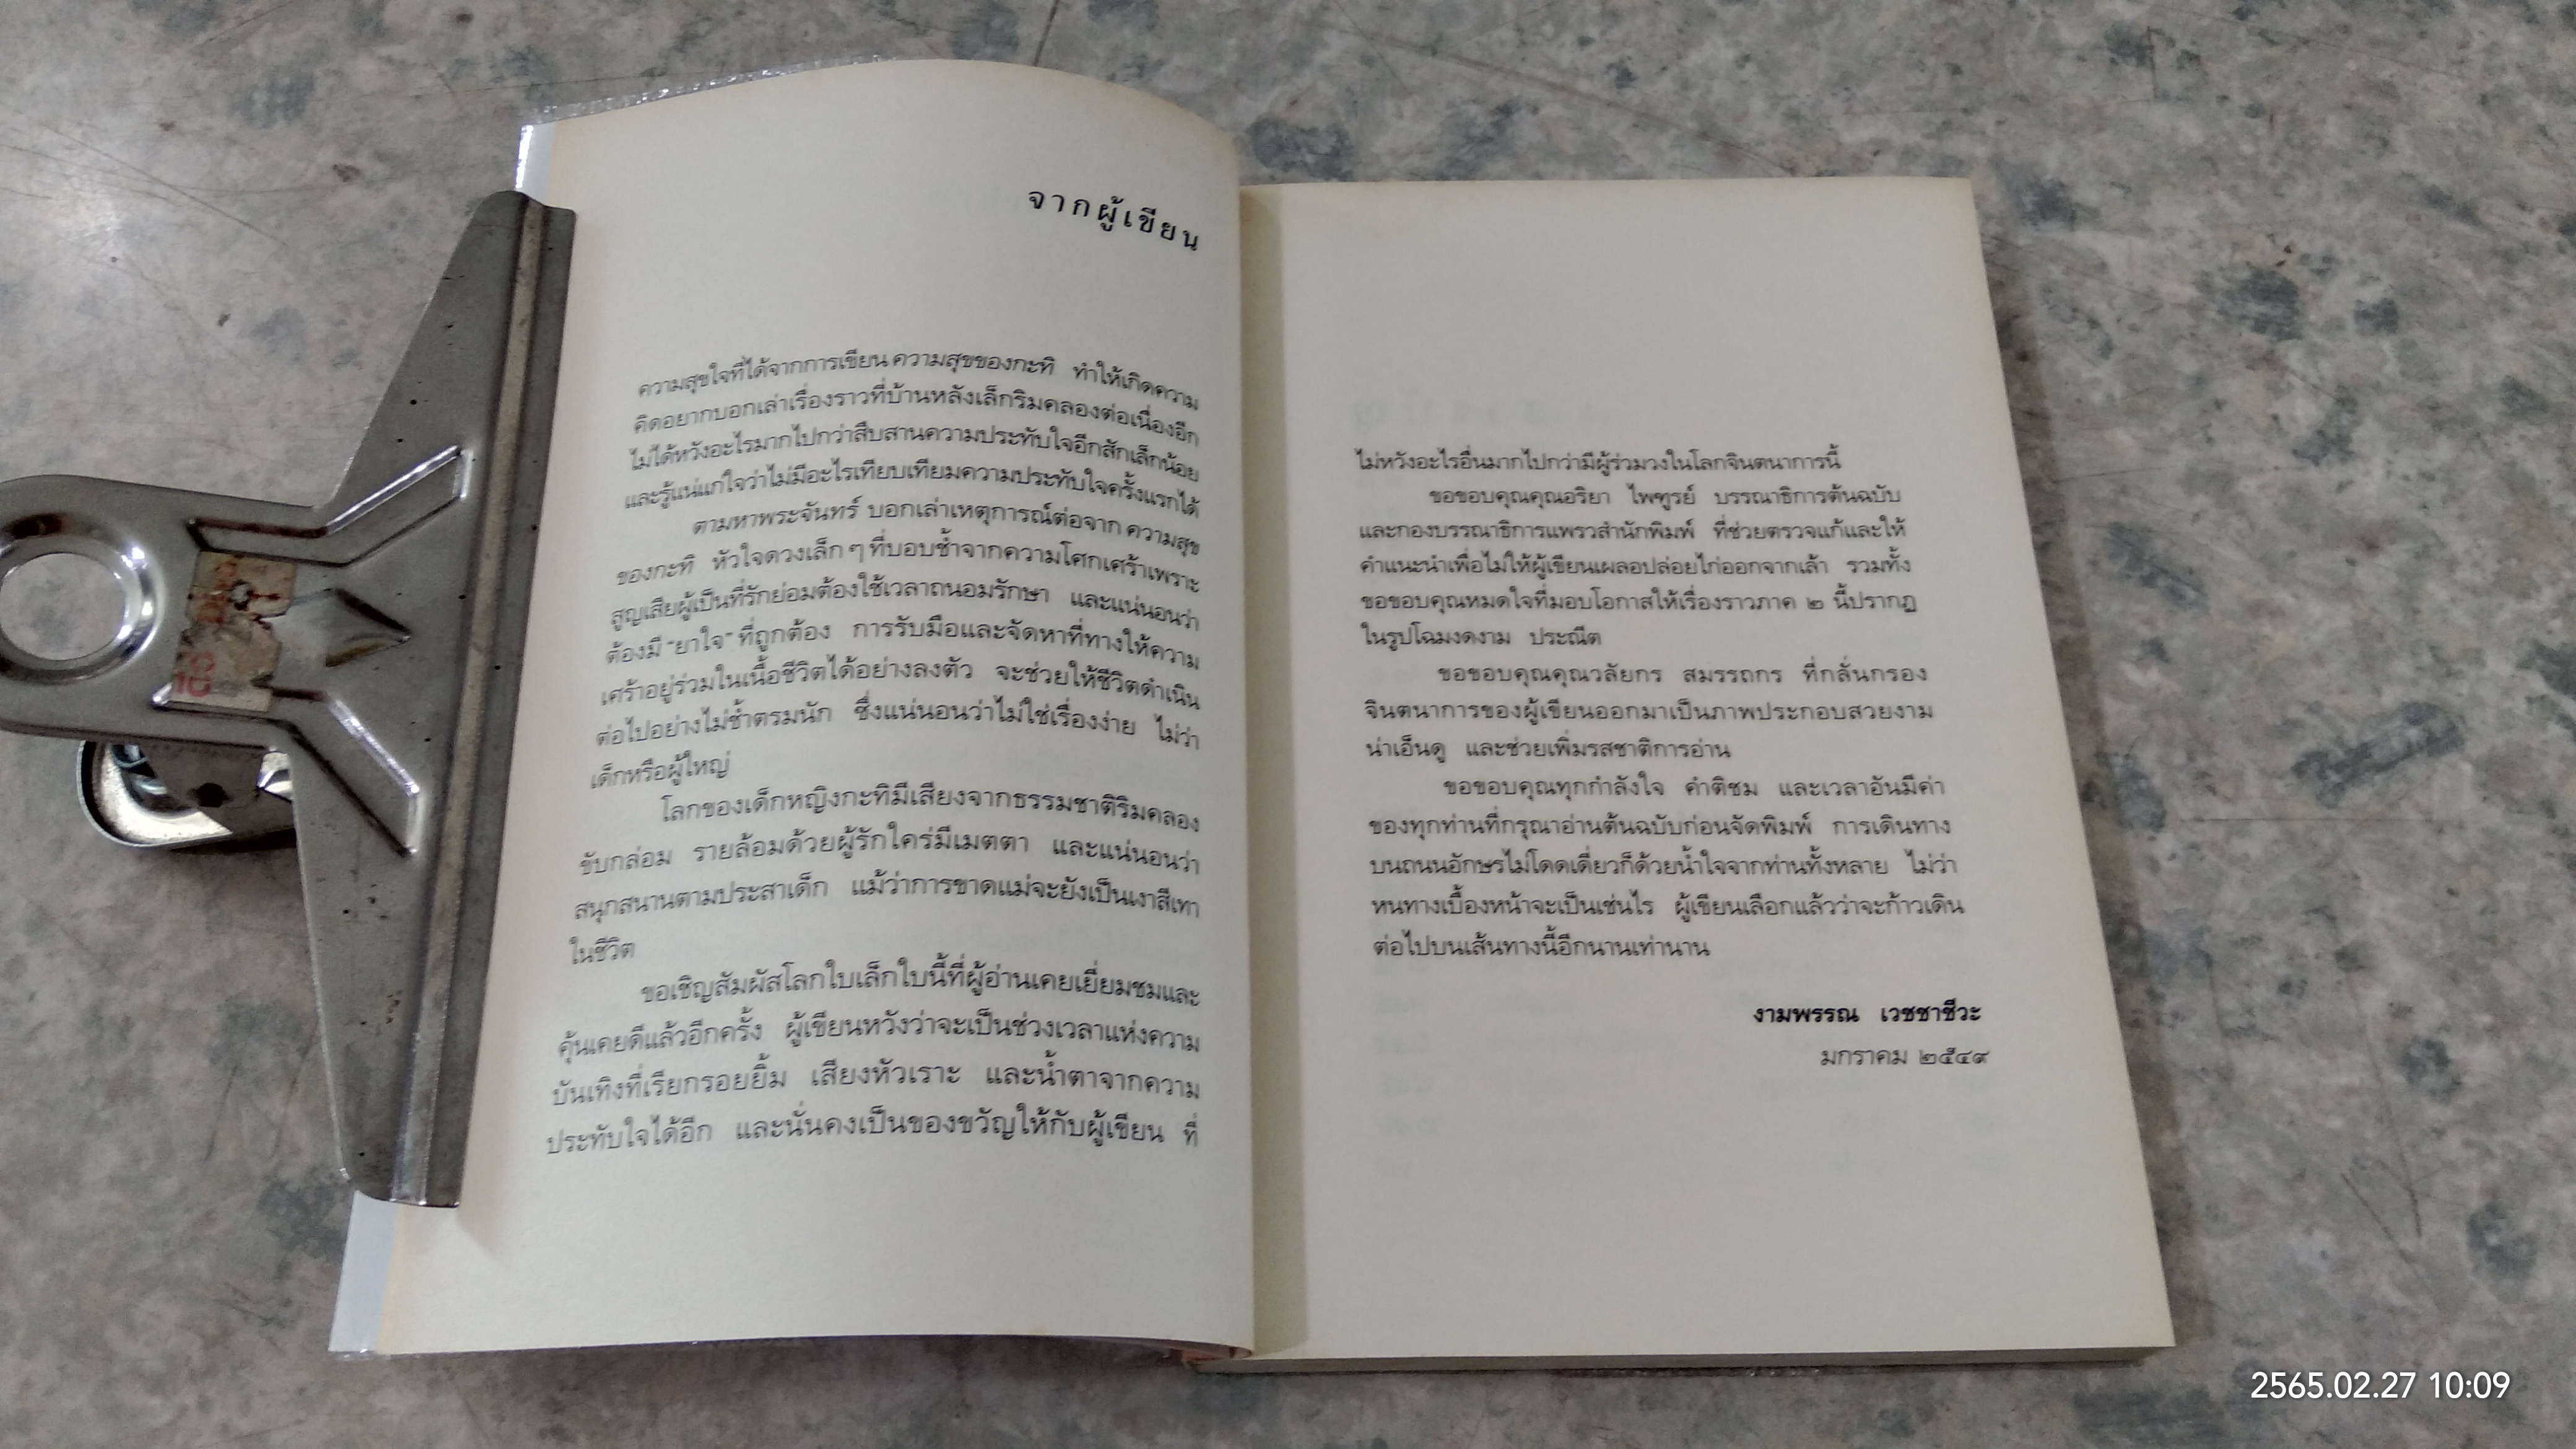 จากผู้เขียน
ความสุขใจที่ได้จากการเขียน ความสุขของกะทิ ทำให้เกิดความ
คิดอยากบอกเล่าเรื่องราวที่บ้านหลังเล็กริมคลองต่อเนื่องอีก
ไม่ได้หวังอะไรมากไปกว่าสืบสานความประทับใจอีกสักเล็กน้อย
และรู้แน่แก่ใจว่าไม่มีอะไรเทียบเทียมความประทับใจครั้งแรกได้
ตามหาพระจันทร์ บอกเล่าเหตุการณ์ต่อจาก ความสุข
ของกะทิ หัวใจดวงเล็ก ๆ ที่บอบช้ำจากความโศกเศร้าเพราะ
สูญเสียผู้เป็นที่รักย่อมต้องใช้เวลาถนอมรักษา และแน่นอนว่า
ต้องมี "ยาใจ" ที่ถูกต้อง การรับมือและจัดหาที่ทางให้ความ
เศร้าอยู่ร่วมในเนื้อชีวิตได้อย่างลงตัว จะช่วยให้ชีวิตดำเนิน
ต่อไปอย่างไม่ช้ำตรมนัก ซึ่งแน่นอนว่าไม่ใช่เรื่องง่าย ไม่ว่า
เด็กหรือผู้ใหญ่
โลกของเด็กหญิงกะทิมีเสียงจากธรรมชาติริมคลอง
ขับกล่อม รายล้อมด้วยผู้รักใคร่มีเมตตา และแน่นอนว่า
สนุกสนานตามประสาเด็ก แม้ว่าการขาดแม่จะยังเป็นเงาสีเทา
ในชีวิต
ขอเชิญสัมผัสโลกใบเล็กใบนี้ที่ผู้อ่านเคยเยี่ยมชมและ
คุ้นเคยดีแล้วอีกครั้ง ผู้เขียนหวังว่าจะเป็นช่วงเวลาแห่งความ
บันเทิงที่เรียกรอยยิ้ม เสียงหัวเราะ และน้ำตาจากความ
ประทับใจได้อีก และนั่นคงเป็นของขวัญให้กับผู้เขียน ที่
ไม่หวังอะไรอื่นมากไปกว่ามีผู้ร่วมวงในโลกจินตนาการนี้
ขอขอบคุณคุณอริยา ไพฑูรย์ บรรณาธิการต้นฉบับ
และกองบรรณาธิการแพรวสำนักพิมพ์ ที่ช่วยตรวจแก้และให้
คำแนะนำเพื่อไม่ให้ผู้เขียนเผลอปล่อยไก่ออกจากเล้า รวมทั้ง
ขอขอบคุณหมดใจที่มอบโอกาสให้เรื่องราวภาค ๒ นี้ปรากฏ
ในรูปโฉมงดงาม ประณีต
ขอขอบคุณคุณวลัยกร สมรรถกร ที่กลั่นกรอง
จินตนาการของผู้เขียนออกมาเป็นภาพประกอบสวยงาม
น่าเอ็นดู และช่วยเพิ่มรสชาติการอ่าน
ขอขอบคุณทุกกำลังใจ คำติชม และเวลาอันมีค่า
ของทุกท่านที่กรุณาอ่านต้นฉบับก่อนจัดพิมพ์ การเดินทาง
บนถนนอักษรไม่โดดเดี่ยวก็ด้วยน้ำใจจากท่านทั้งหลาย ไม่ว่า
หนทางเบื้องหน้าจะเป็นเช่นไร ผู้เขียนเลือกแล้วว่าจะก้าวเดิน
ต่อไปบนเส้นทางนี้อีกนานเท่านาน
งามพรรณ เวชชาชีวะ
มกราคม ๒๕๔๙
2565.02.27 10:09